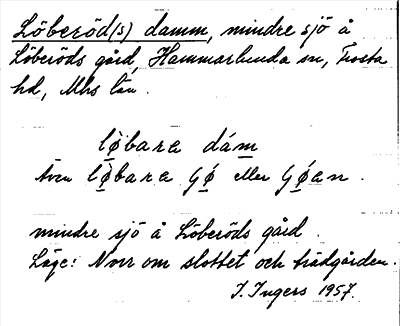 Löberöd(s) damm, mindre sjö å
Löberöds gård, Hammarlunda sn, Frosta
hd, Mhs län.
lø̀bare dám
Även lø̀bare gǿ eller gǿen.
mindre sjö å Löberöds gård.
Läge: Norr om slottet och trädgården.
I. Ingers 1957.